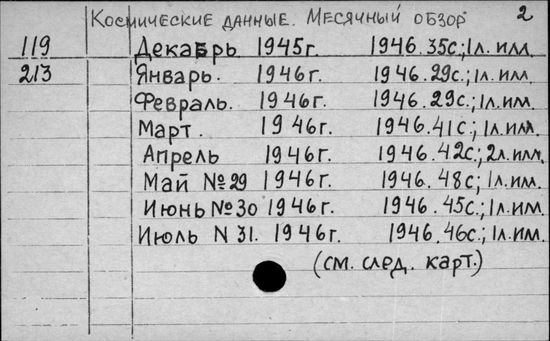 Космические данные. Месячный обзор 2
119 Декабрь 1945г. 1946. 35с.; 1л. илл.
213 Январь. 1946г. 1946. 29с.; 1л. илл.
Февраль. 1946г. 1946. 29с.; 1л. илл.
Март. 1946г. 1946. 41с.; 1л. илл.
Апрель 1946г. 1946. 42с.; 2л. илл.
Май №29 1946г. 1946. 48с; 1л. илл.
Июнь №30 1946г. 1946. 45с.; 1л. илл.
Июль N 31. 1946г. 1946. 46с.; 1л. илл.
(см. след. карт.)